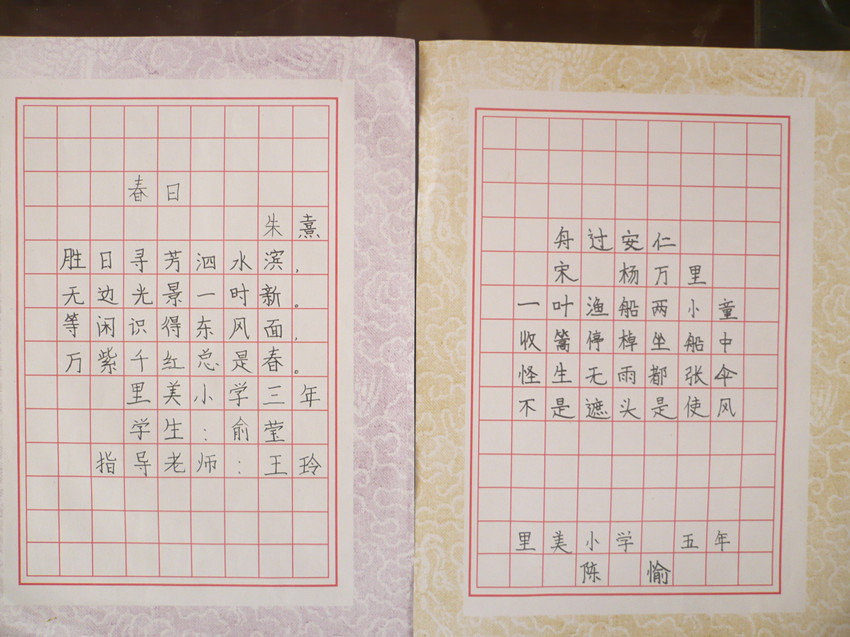 春日
朱熹
胜日寻芳泗水滨，
无边光景一时新。
等闲识得东风面，
万紫千红总是春。
里美小学三年
学生：俞莹
指导老师：王玲
舟过安仁
宋 杨万里
一叶渔船两小童
收篙停棹坐船中
怪生无雨都张伞
不是遮头是使风
里美小学 五年
陈 愉